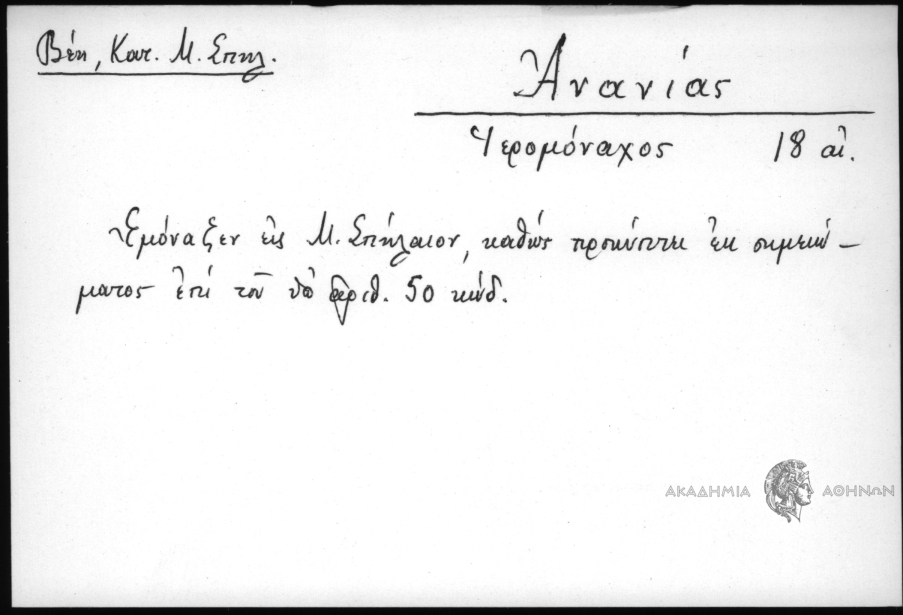 Βέη, Κατ. Μ. Σπηλ.
Ἀνανίας
Ἱερομόναχος 18 αἰ.
Ἐμόναξεν εἰς Μ. Σπήλαιον, καθὼς προκύπτει ἐκ σημειώ-
ματος ἐπὶ τοῦ ὑπ' ἀριθ. 50 κώδ.
ΑΚΑΔΗΜΙΑ ΑΘΗΝΩΝ